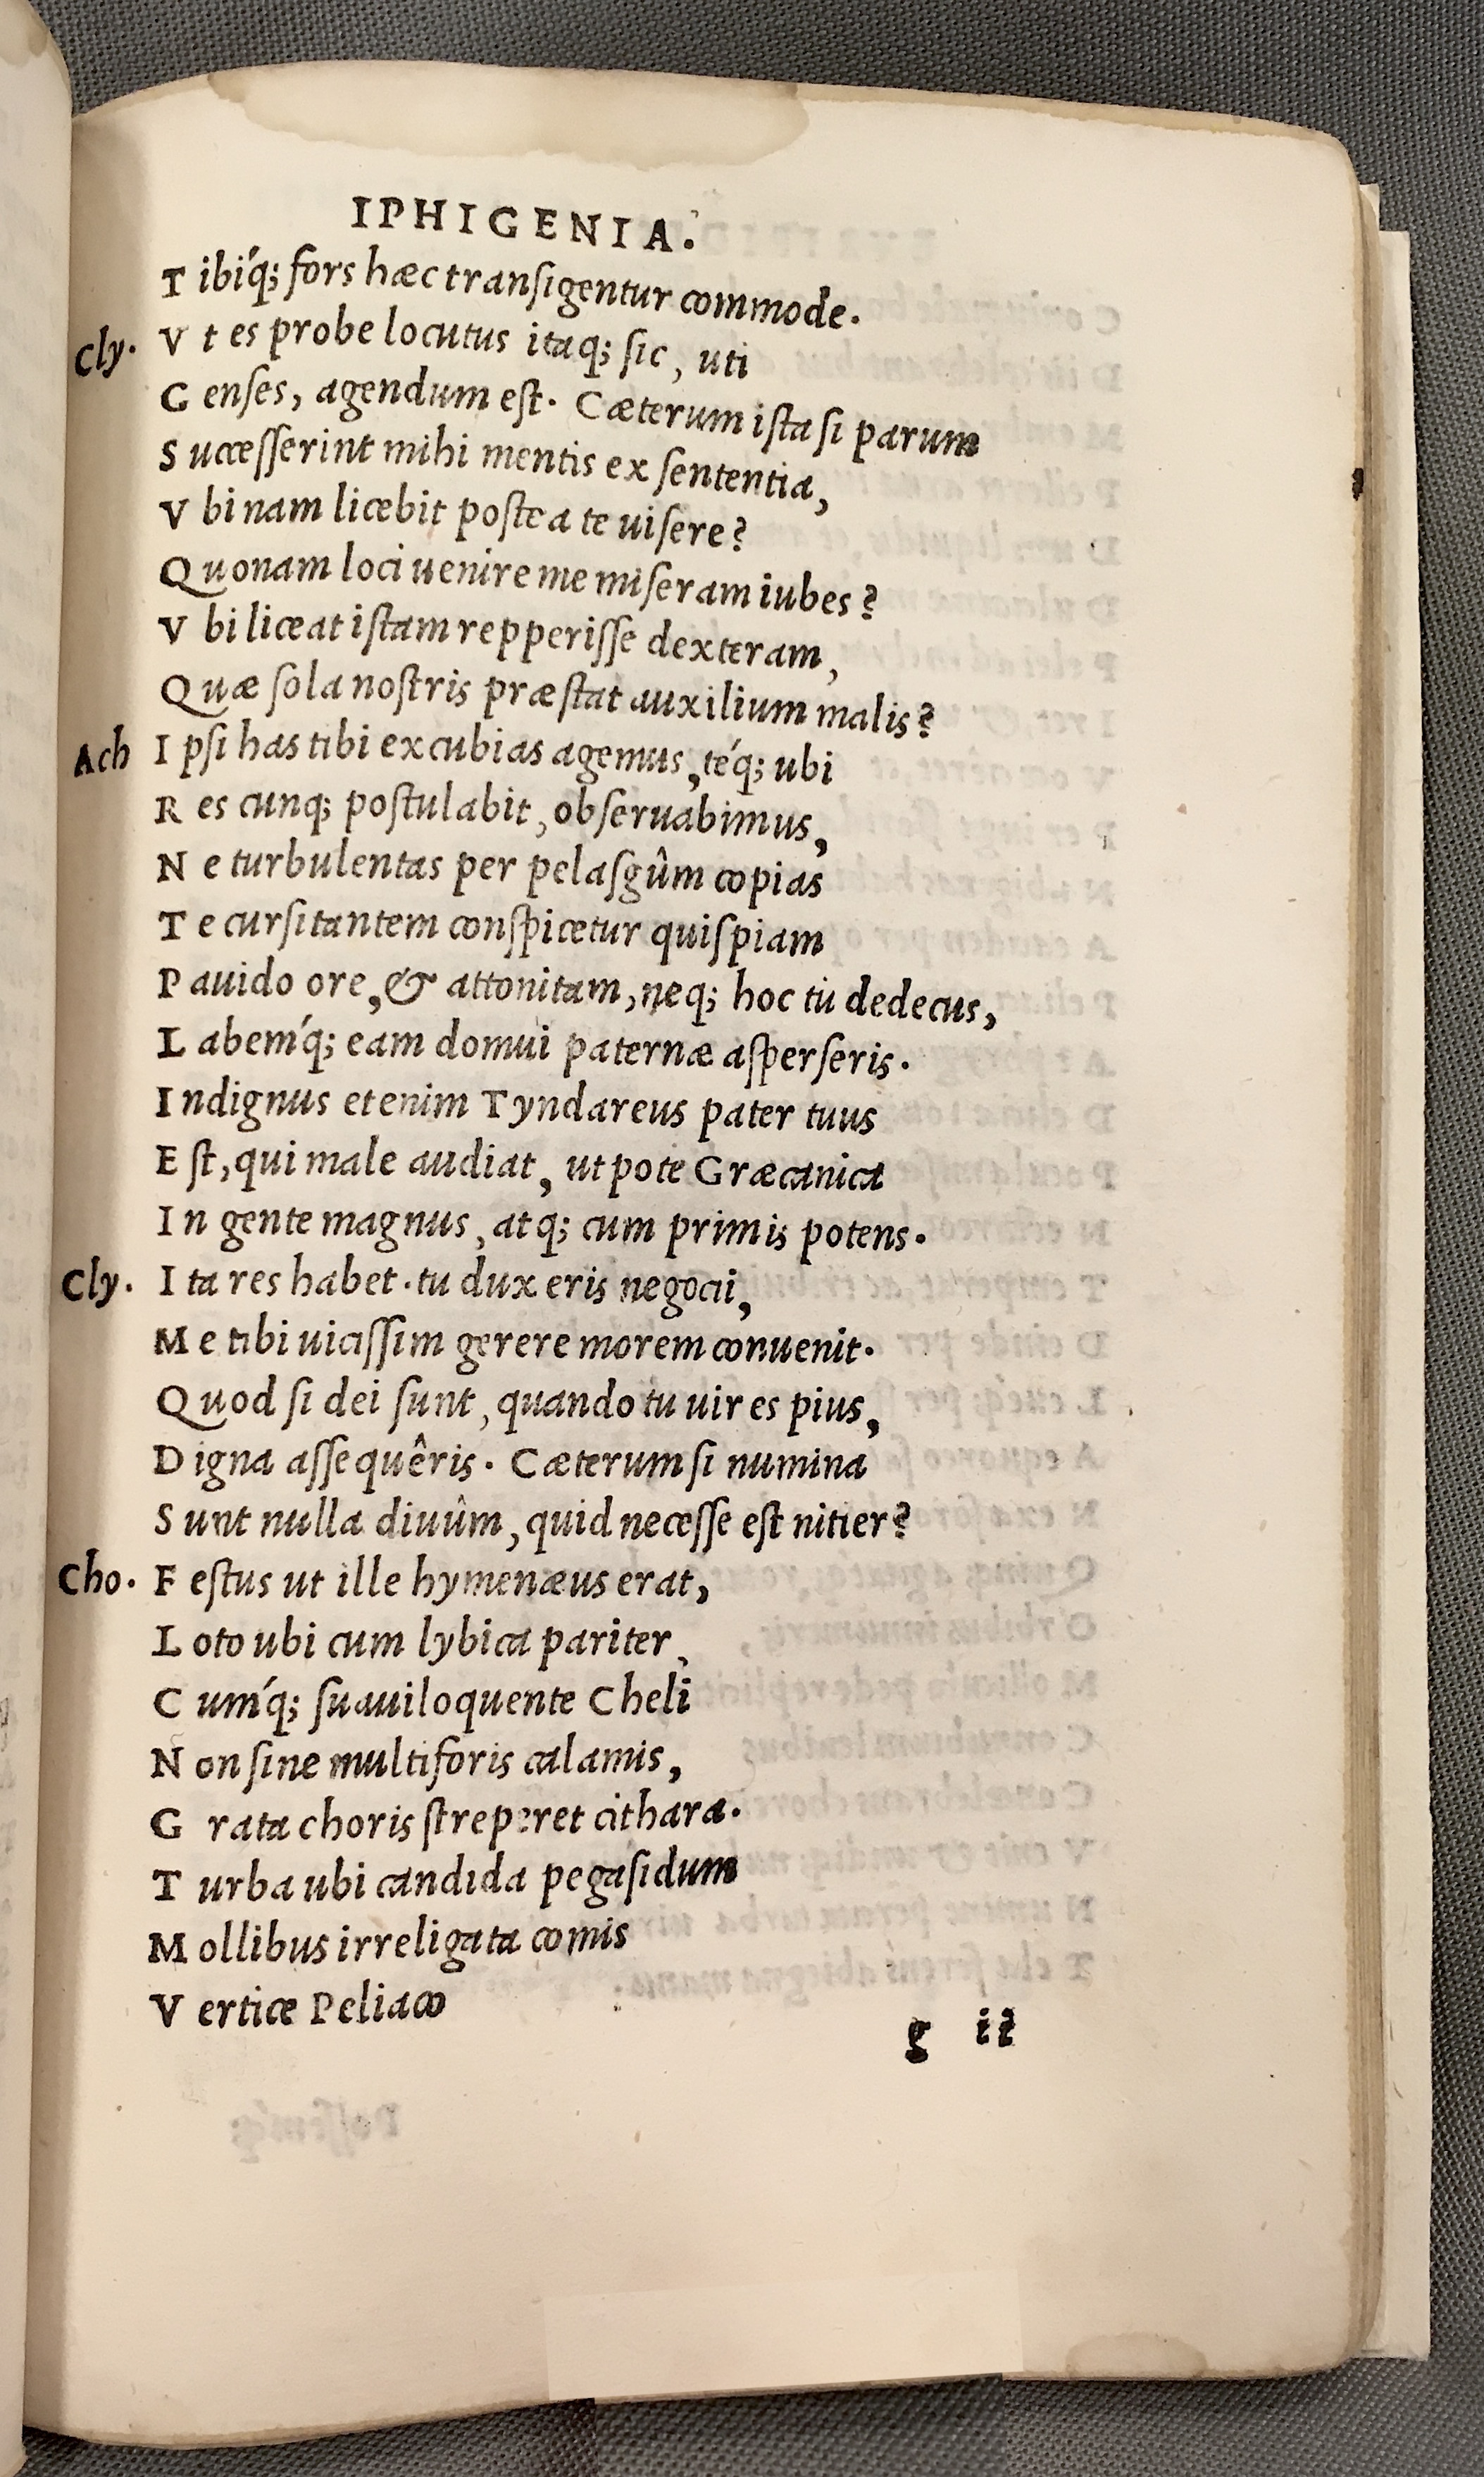 IPHIGENIA.
Tibiq́; fors hæc transigentur commode.
Cly. Vt es probe locutus itaq; sic, uti
Censes, agendum est. Cæterum ista si parum
Successerint mihi mentis ex sententia,
Vbinam licebit postea te uisere?
Quonam loci uenire me miseram iubes?
Vbi liceat istam repperisse dexteram,
Quæ sola nostris præstat auxilium malis?
Ach Ipsi has tibi excubias agemus, téq; ubi
Res cunq; postulabit, obseruabimus,
Ne turbulentas per pelasgûm copias
Te cursitantem conspicetur quispiam
Pauido ore, & attonitam, neq; hoc tu dedecus,
Labemq́; eam domui paternæ asperseris.
Indignus etenim Tyndareus pater tuus
Est, qui male audiat, ut pote Græcanica
In gente magnus, atq; cum primis potens.
Cly. Ita res habet. tu dux eris negocii,
Me tibi uicissim gerere morem conuenit.
Quod si dei sunt, quando tu uir es pius,
Digna assequêris. Cæterum si numina
Sunt nulla diuûm, quid necesse est nitier?
Cho. Festus ut ille hymenæus erat,
Loto ubi cum lybica pariter,
Cumq́; suauiloquente Cheli
Non sine multiforis calamis,
Grata choris streperet cithara.
Turba ubi candida pegasidum
Mollibus irreligata comis
Vertice Peliaco
g ii